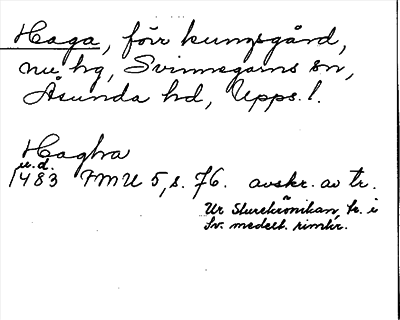 Haga, förr kungsgård,
nu hg, Svinnegarns sn,
Åsunda hd, Upps. l.
Haghra
u.d.
1483 FMU 5, s. 76. avskr. av tr.
Ur Sturekrönikan, tr. i
Sv. medelt. rimkr.